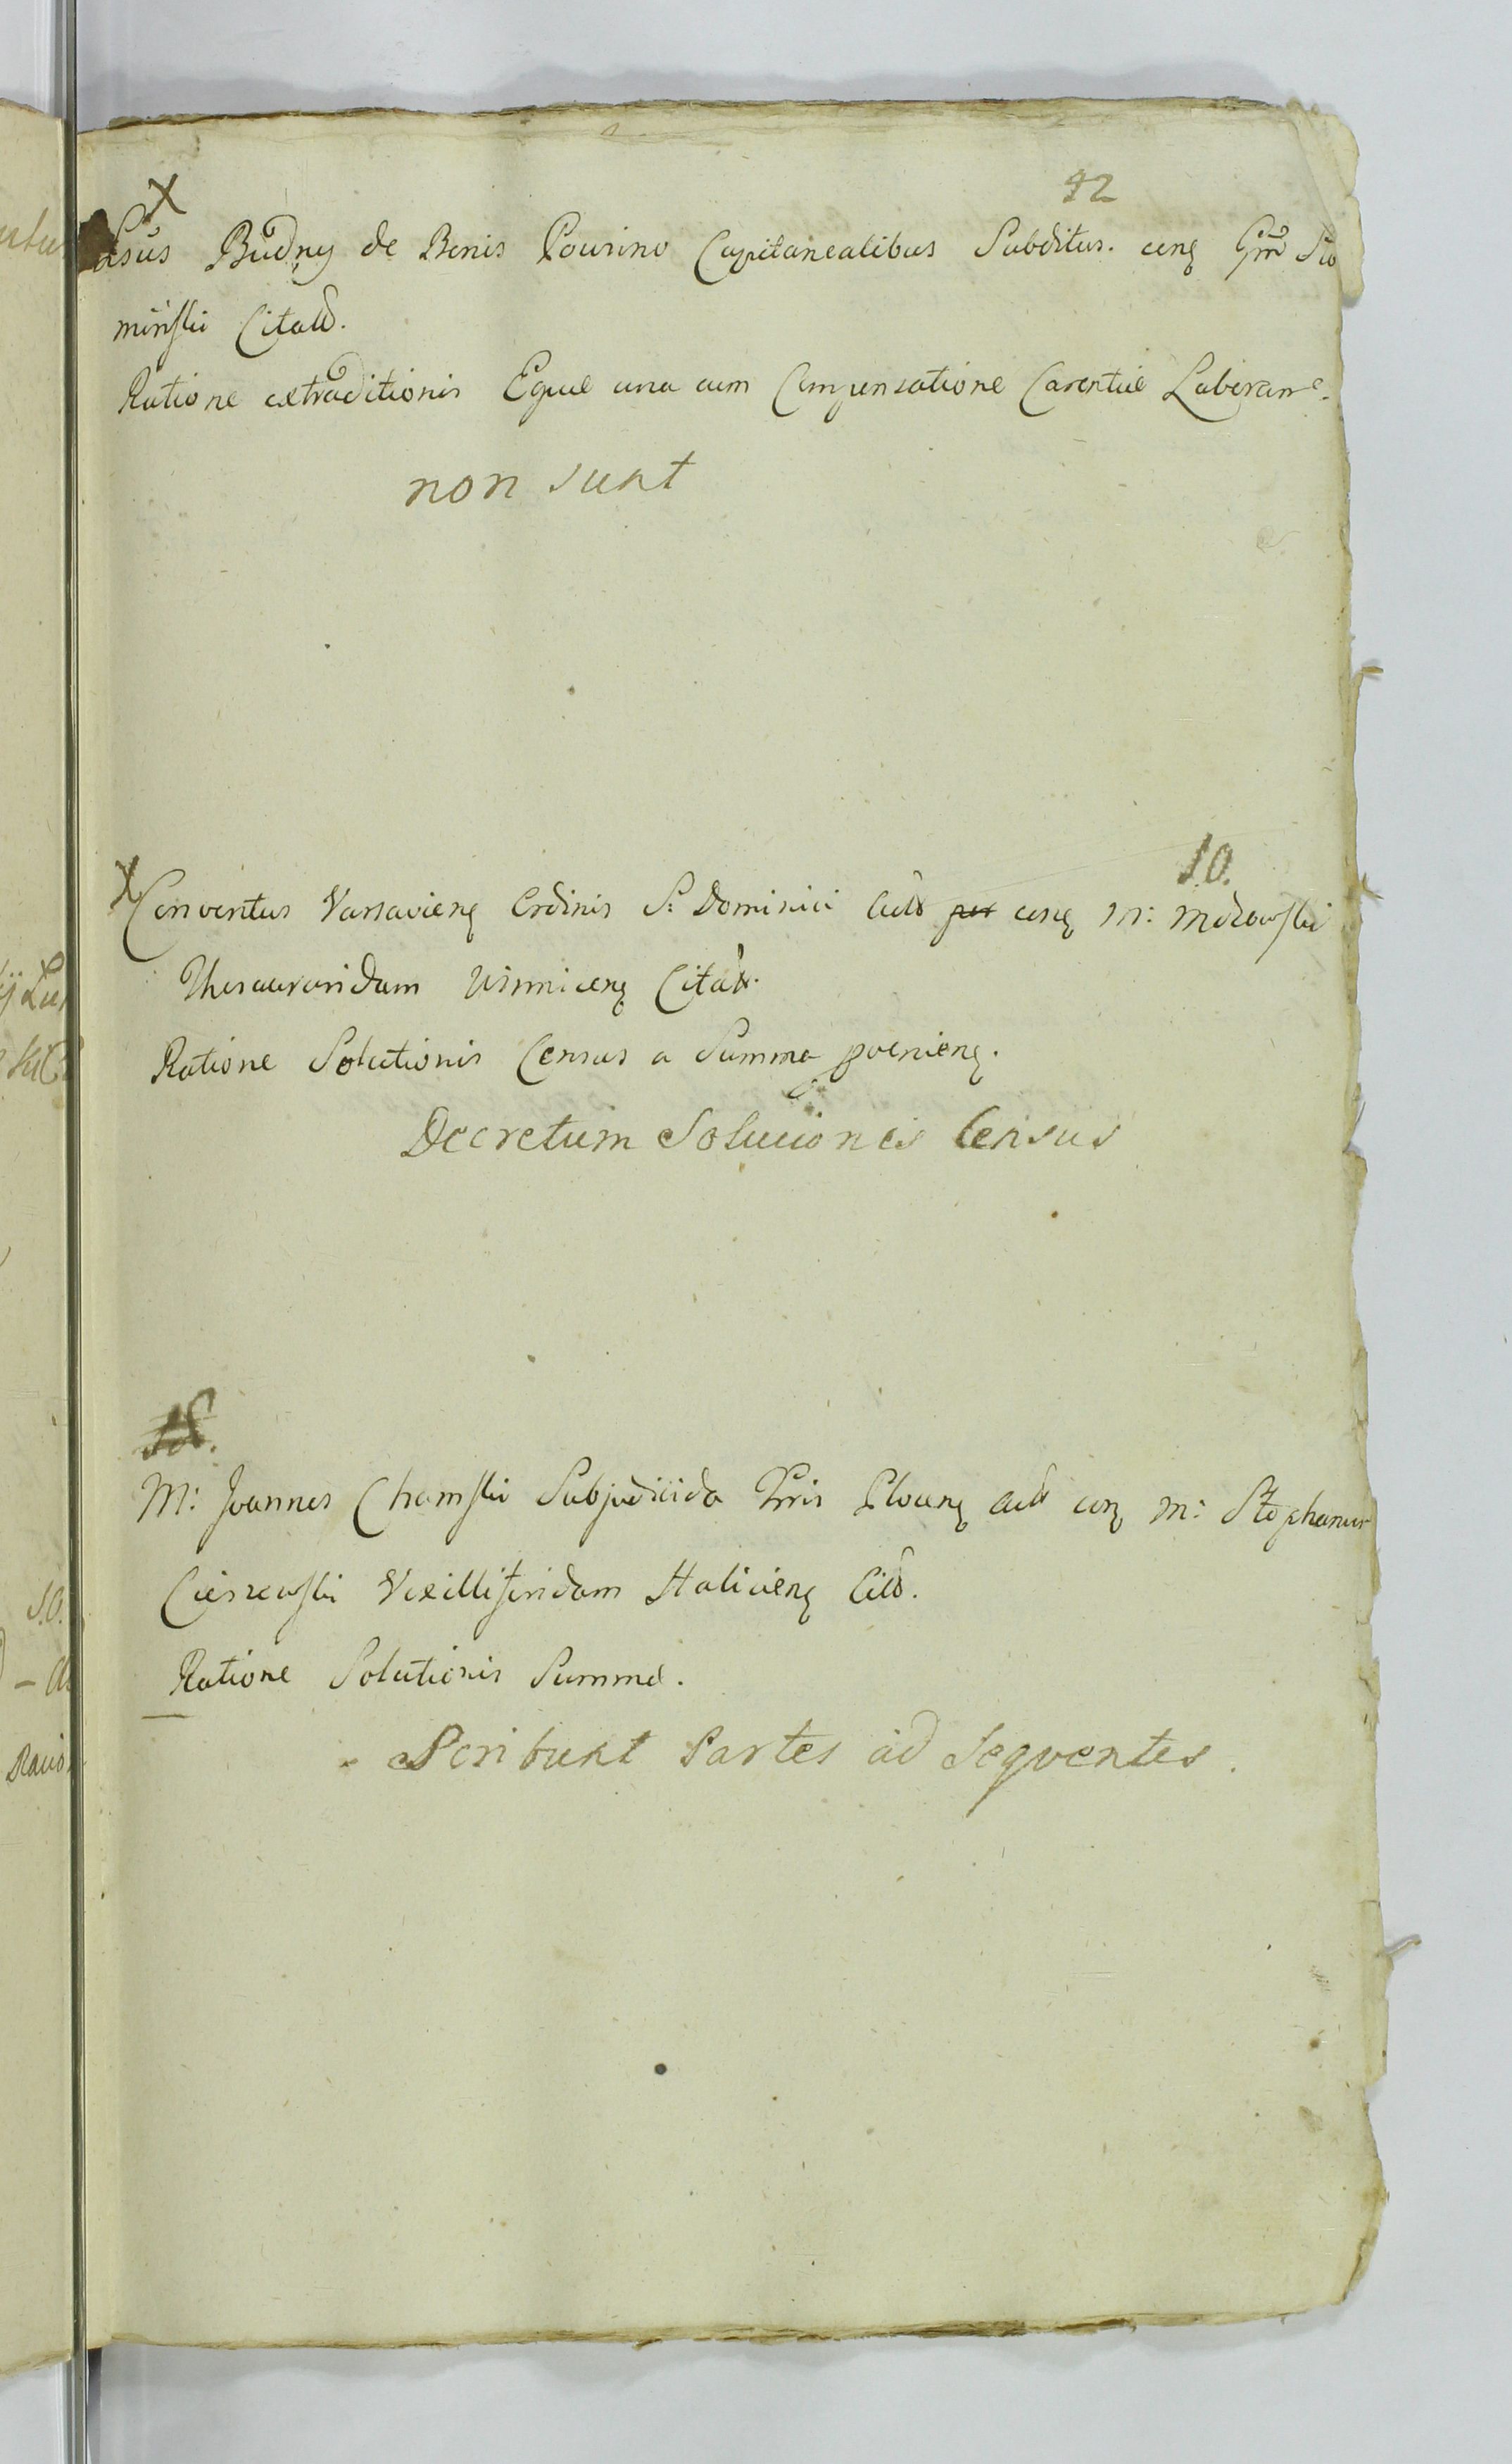 42
X
Budny de Bonis Powsino Capitanealibus Subditus. cong Grm Sło
miński Citatt.
Ratione extraditionis Equae una cum Compensatione Carentiae Laborum
non sunt
10.
X Conventus Varsavieng Ordinis S: Dominici Actt per cong M:
Thesauraridam Winniceng Citatt.
Ratione Solutionis Census a Summa proenieng.
Decretum Soluciones Census
18.
M: Joannes Chamski Subjudicida Trris Ploceng actt cong M: Stephanum
Cieszewski Vexilliferidam Haliceng Citt.
Ratione Solutionis Summae.
Scribunt Partes ad Seqventes.